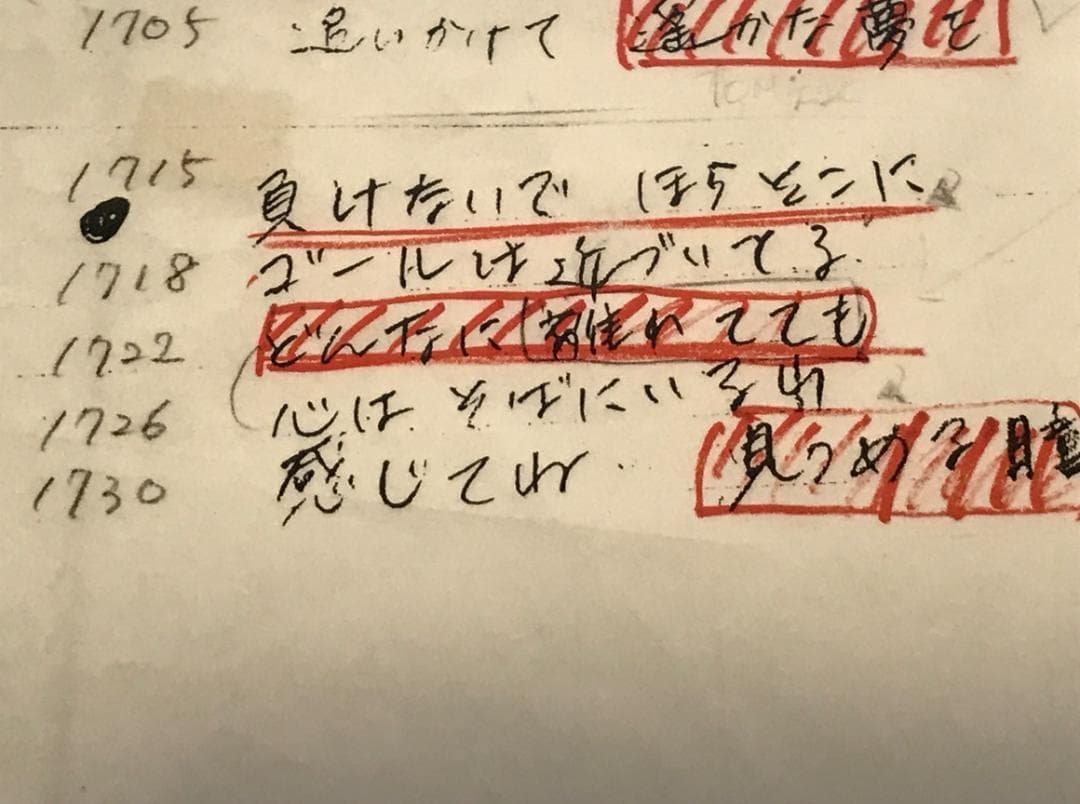 1705 追いかけて 遥かな夢を
1715 負けないで ほらそこに
1718 ゴールは近づいてる
1722 どんなに離れてても
1726 心は そばにいるわ
1730 感じてね 見つめる瞳